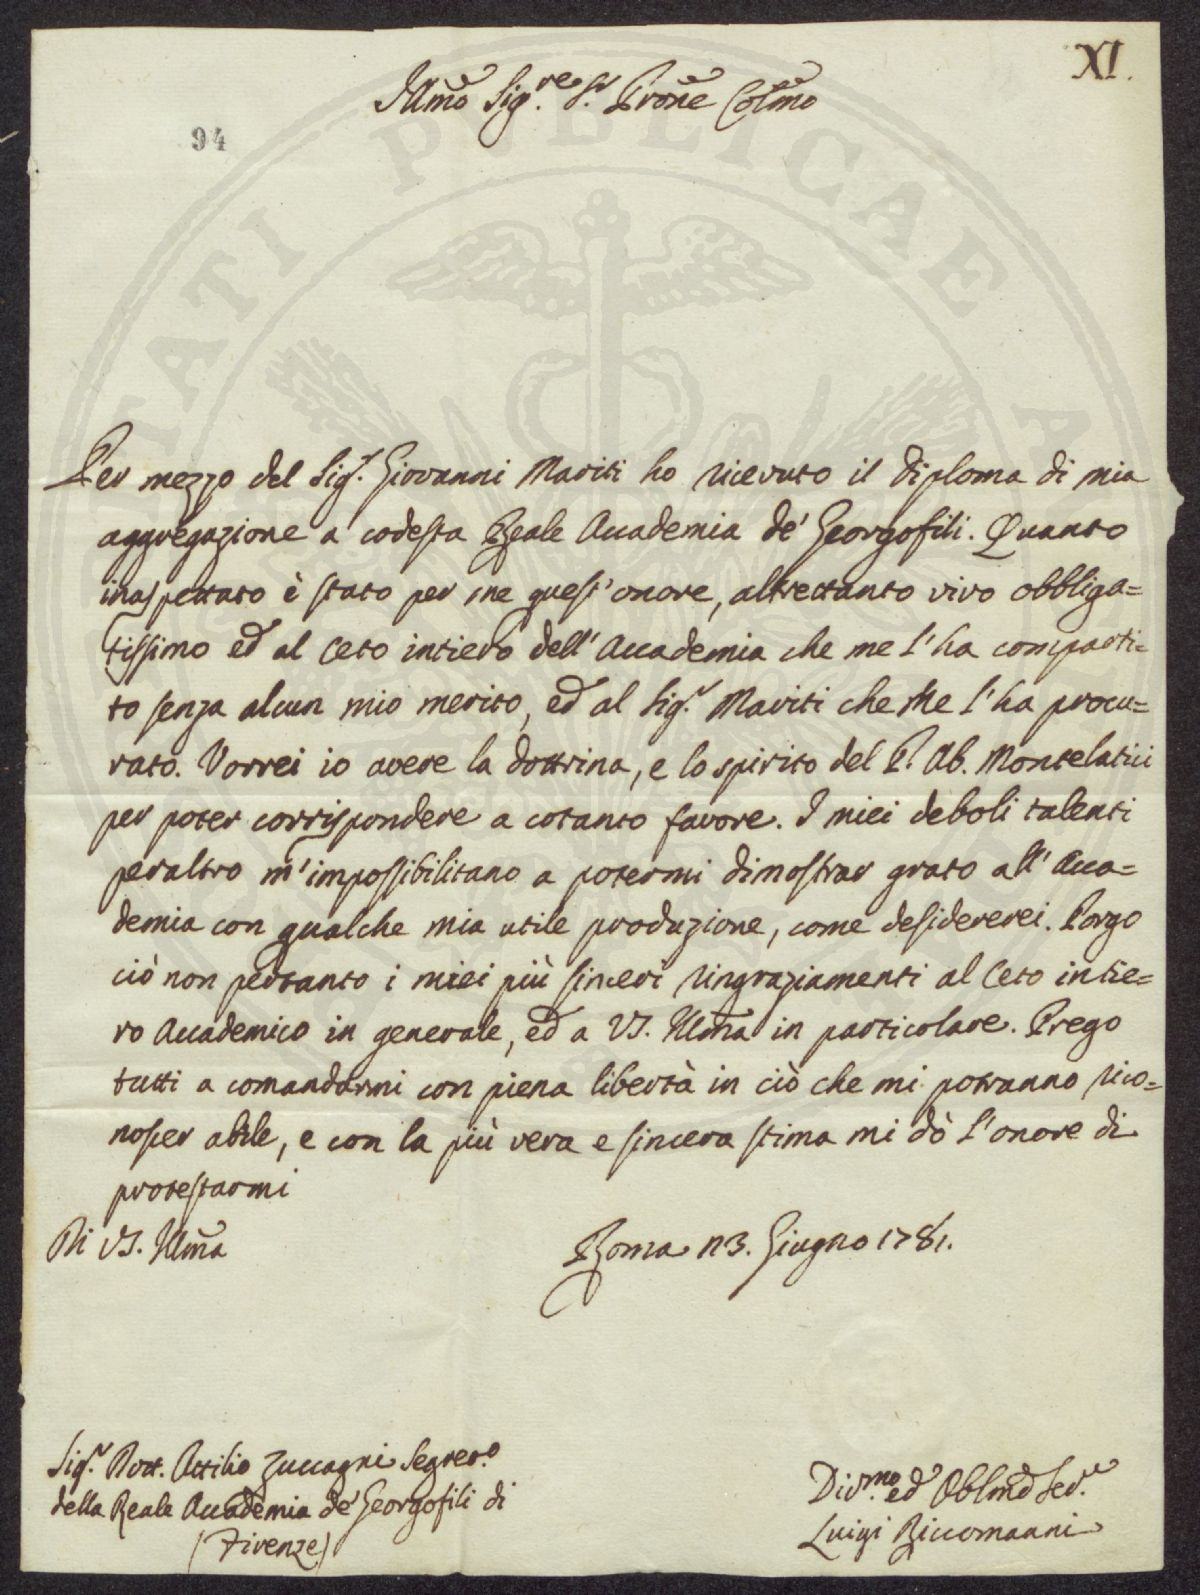 XI.
Illmo Sig.re S.r Prone Colmo
94
Per mezzo del Sig.r Giovanni Mariti ho ricevuto il diploma di mia
aggregazione a codesta Reale Accademia de' Georgofili. Quanto
inaspettato è stato per me quest'onore, altrettanto vivo obbliga=
tissimo ed al Ceto intiero dell'Accademia che me l'ha comparti=
to senza alcun mio merito, ed al Sig.r Mariti che me l'ha procu=
rato. Vorrei io avere la dottrina, e lo spirito del P. Ab. Montelatici
per poter corrispondere a cotanto favore. I miei deboli talenti
peraltro m'impossibilitano a potermi dimostrar grato all'Acca=
demia con qualche mia utile produzione, come desidererei. Porgo
ciò non pertanto i miei più sinceri ringraziamenti al Ceto intie=
ro Accademico in generale, ed a VS. Illma in particolare. Prego
tutti a comandarmi con piena libertà in ciò che mi potranno rico=
noscer abile, e con la più vera e sincera stima mi dò l'onore di
protestarmi
Di VS. Illma
Roma 3. Giugno 1781.
Sig.r Dott. Attilio Zuccagni Segret.o
della Reale Accademia de' Georgofili di
(Firenze)
Div.mo ed Oblmo Ser.e
Luigi Riccomanni
PUBLICAE